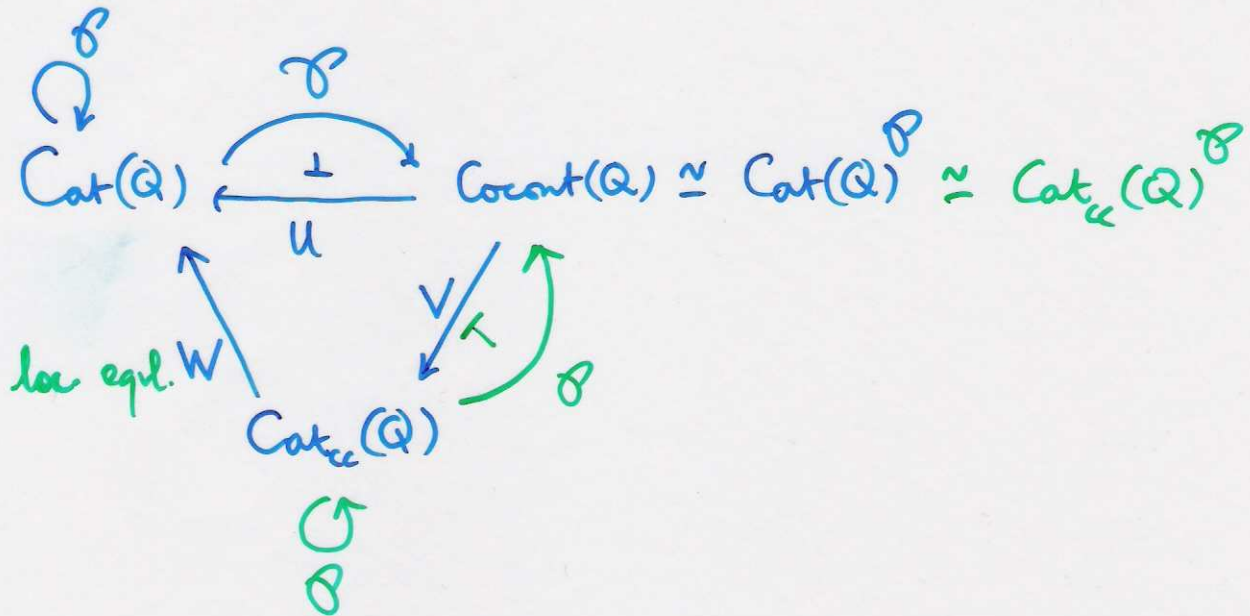 𝒫
𝒫
Cat(Q) ⊥ Cocont(Q) ≃ Cat(Q)^𝒫 ≃ Cat_cc(Q)^𝒫
U
V ⊥
loc. eqvl. W 𝒫
Cat_cc(Q)
𝒫